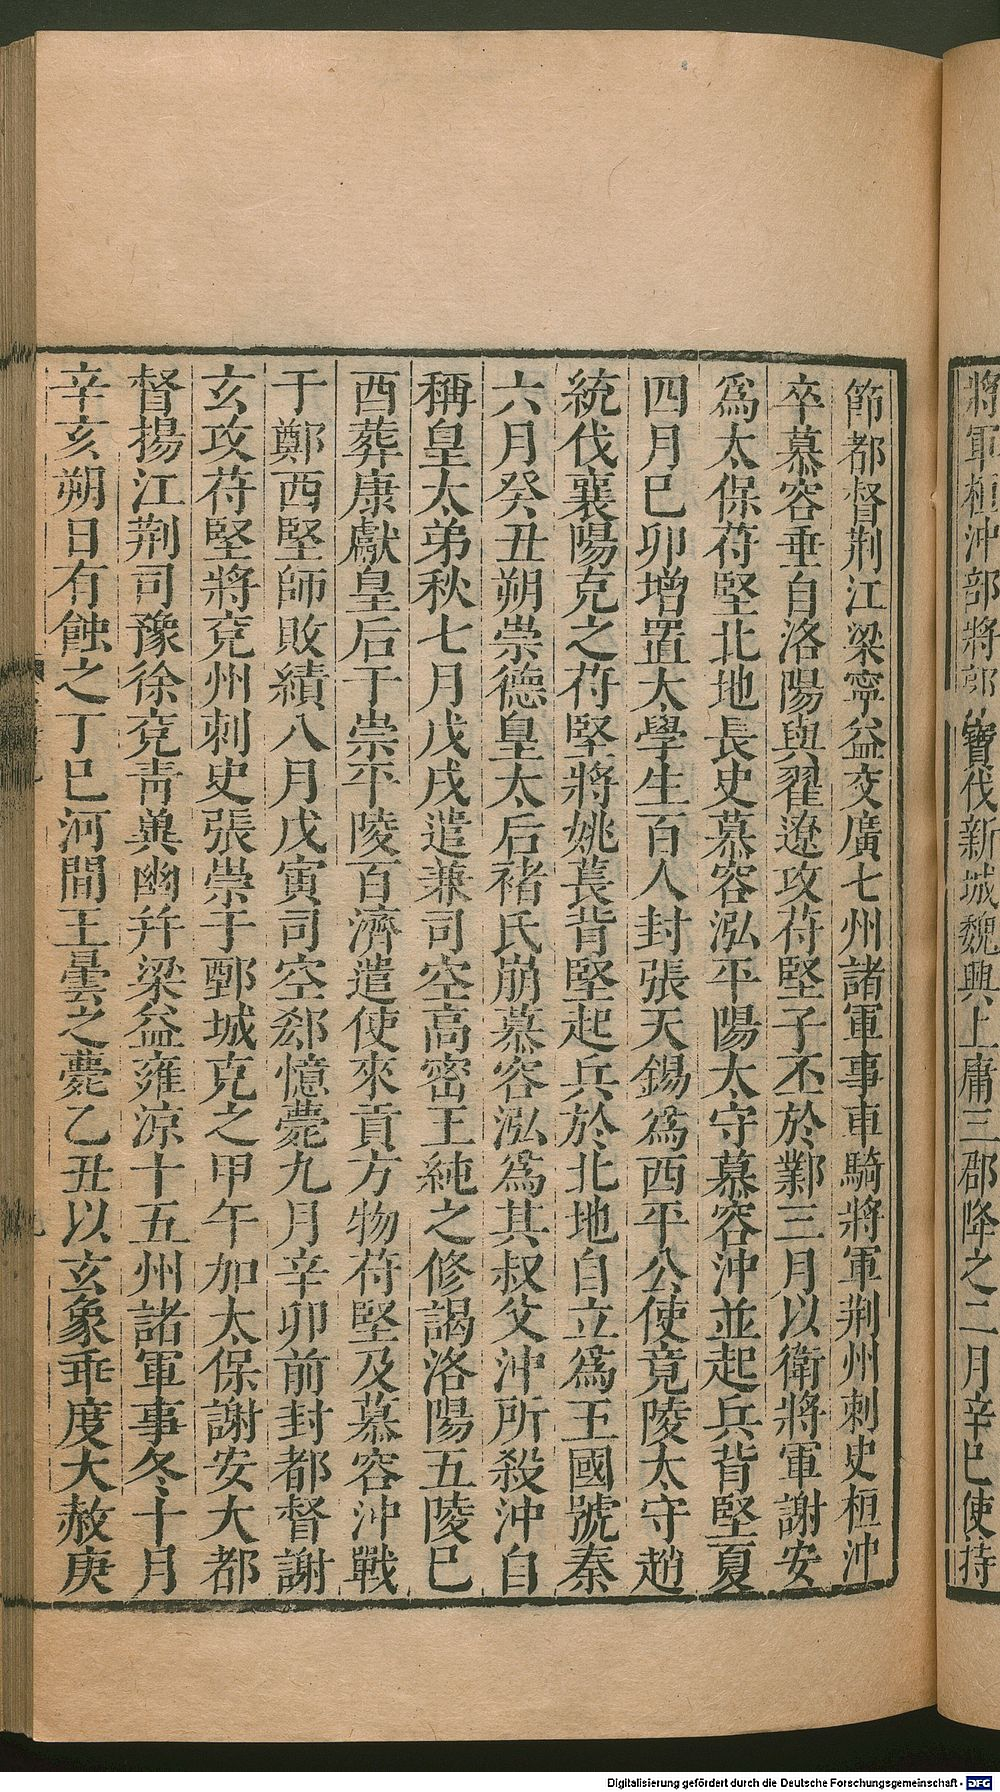 將軍桓沖部將郭寶伐新城魏興上庸三郡降之二月辛巳使持
節都督荆江梁寧益交廣七州諸軍事車騎將軍荆州刺史桓沖
卒慕容垂自洛陽與翟遼攻苻堅子丕於鄴三月以衛將軍謝安
爲太保苻堅北地長史慕容泓平陽太守慕容沖並起兵背堅夏
四月巳卯增置太學生百人封張天錫爲西平公使竟陵太守趙
統伐襄陽克之苻堅將姚萇背堅起兵於北地自立爲王國號秦
六月癸丑朔崇德皇太后褚氏崩慕容泓爲其叔父沖所殺沖自
稱皇太弟秋七月戊戌遣兼司空高密王純之修謁洛陽五陵巳
酉葬康獻皇后于崇平陵百濟遣使來貢方物苻堅及慕容沖戰
于鄭西堅師敗績八月戊寅司空郄愔薨九月辛卯前封都督謝
玄攻苻堅將兗州刺史張崇于鄄城克之甲午加太保謝安大都
督揚江荆司豫徐兗靑兾幽幷梁益雍凉十五州諸軍事冬十月
辛亥朔日有蝕之丁巳河間王曇之薨乙丑以玄象乖度大赦庚
Digitalisierung gefördert durch die Deutsche Forschungsgemeinschaft - DFG